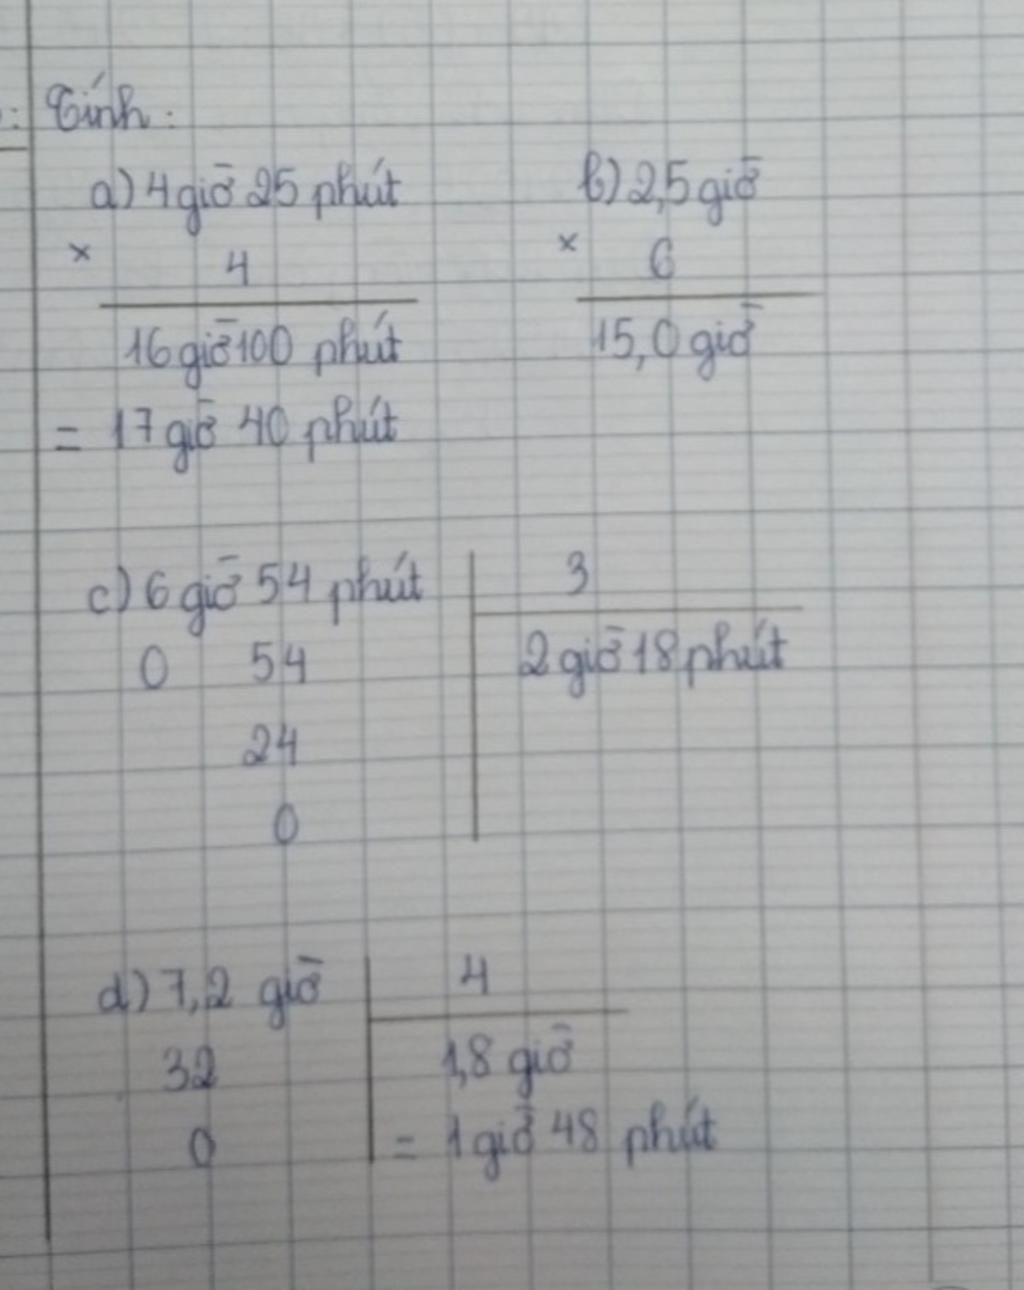 : Tính:
a) 4 giờ 25 phút
× 4
16 giờ 100 phút
= 17 giờ 40 phút
b) 2,5 giờ
× 6
15,0 giờ
c) 6 giờ 54 phút 3
0 54 2 giờ 18 phút
24
0
d) 7,2 giờ 4
32 1,8 giờ
0 = 1 giờ 48 phút